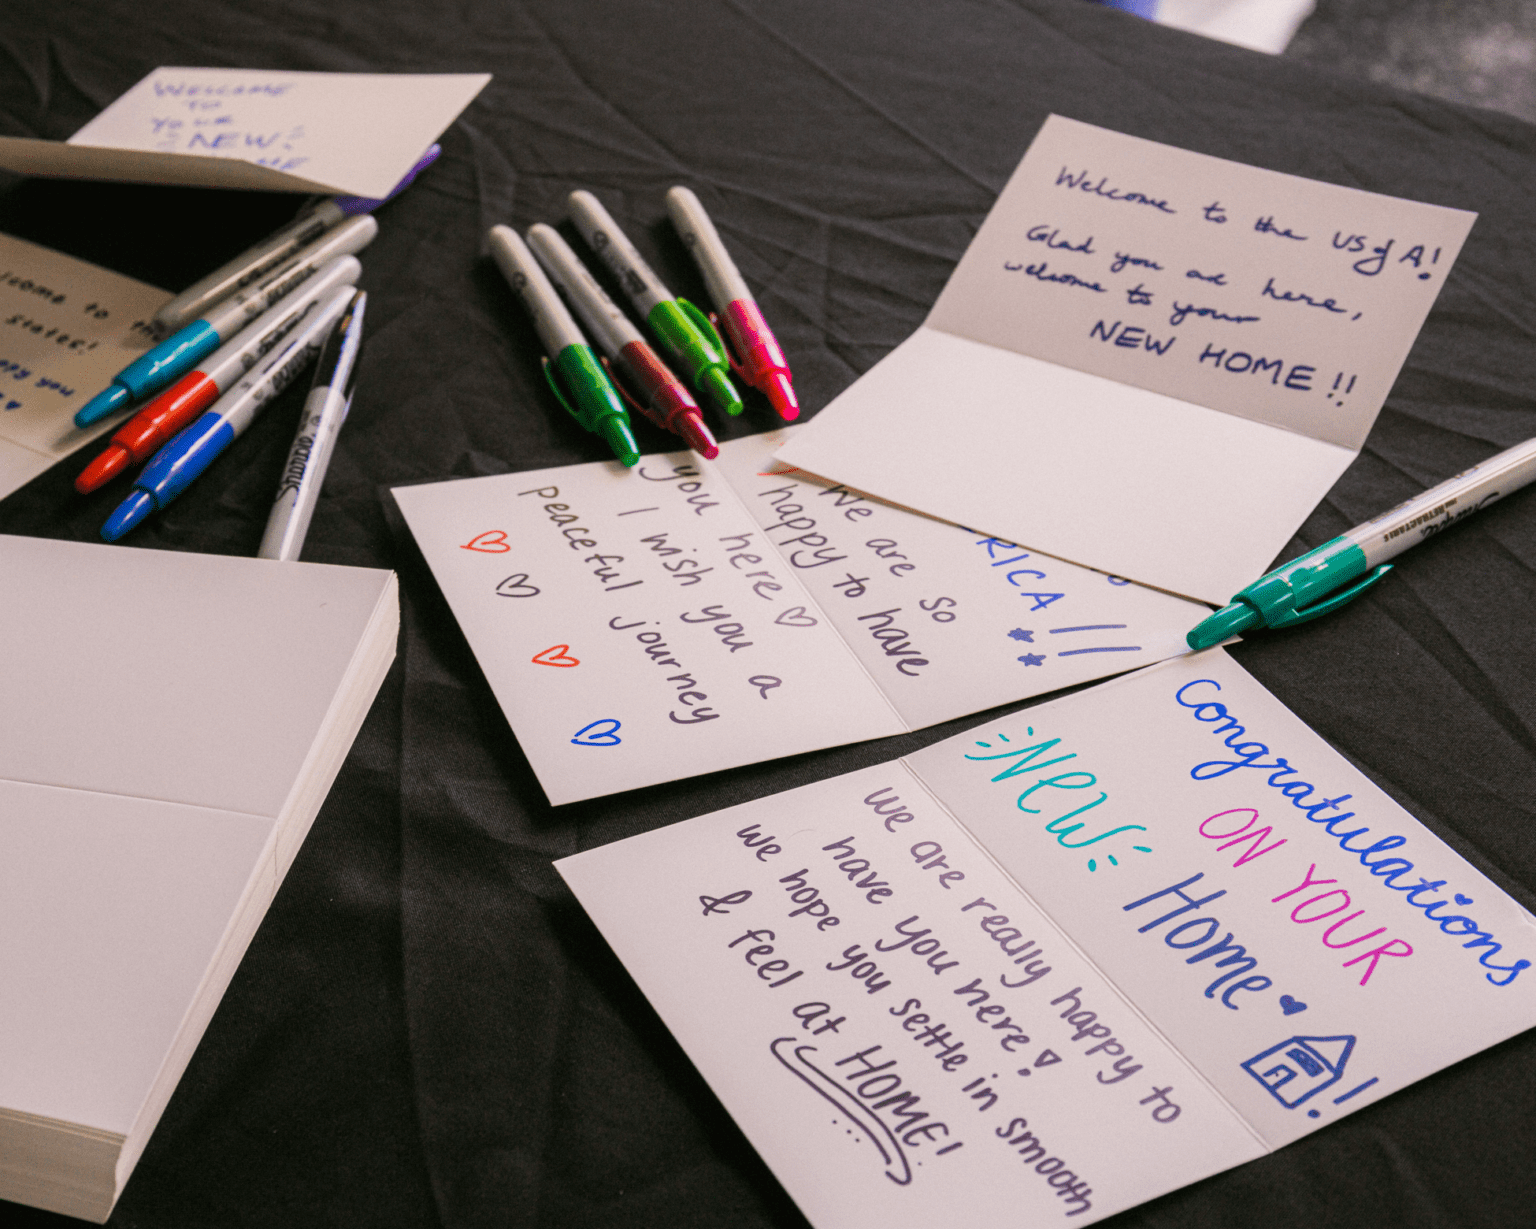 WELCOME
TO
YOUR
NEW
lcome to the
States!
ppy you
Welcome to the US of A!
Glad you are here,
welcome to your
NEW HOME!!
RICA!!
We are so
happy to have
you here
I wish you a
peaceful journey
Congratulations
ON YOUR
NEW
Home!
We are really happy to
have you here!
We hope you settle in smooth
& feel at HOME!
Sharpie
RETRACTABLE
Sharpie